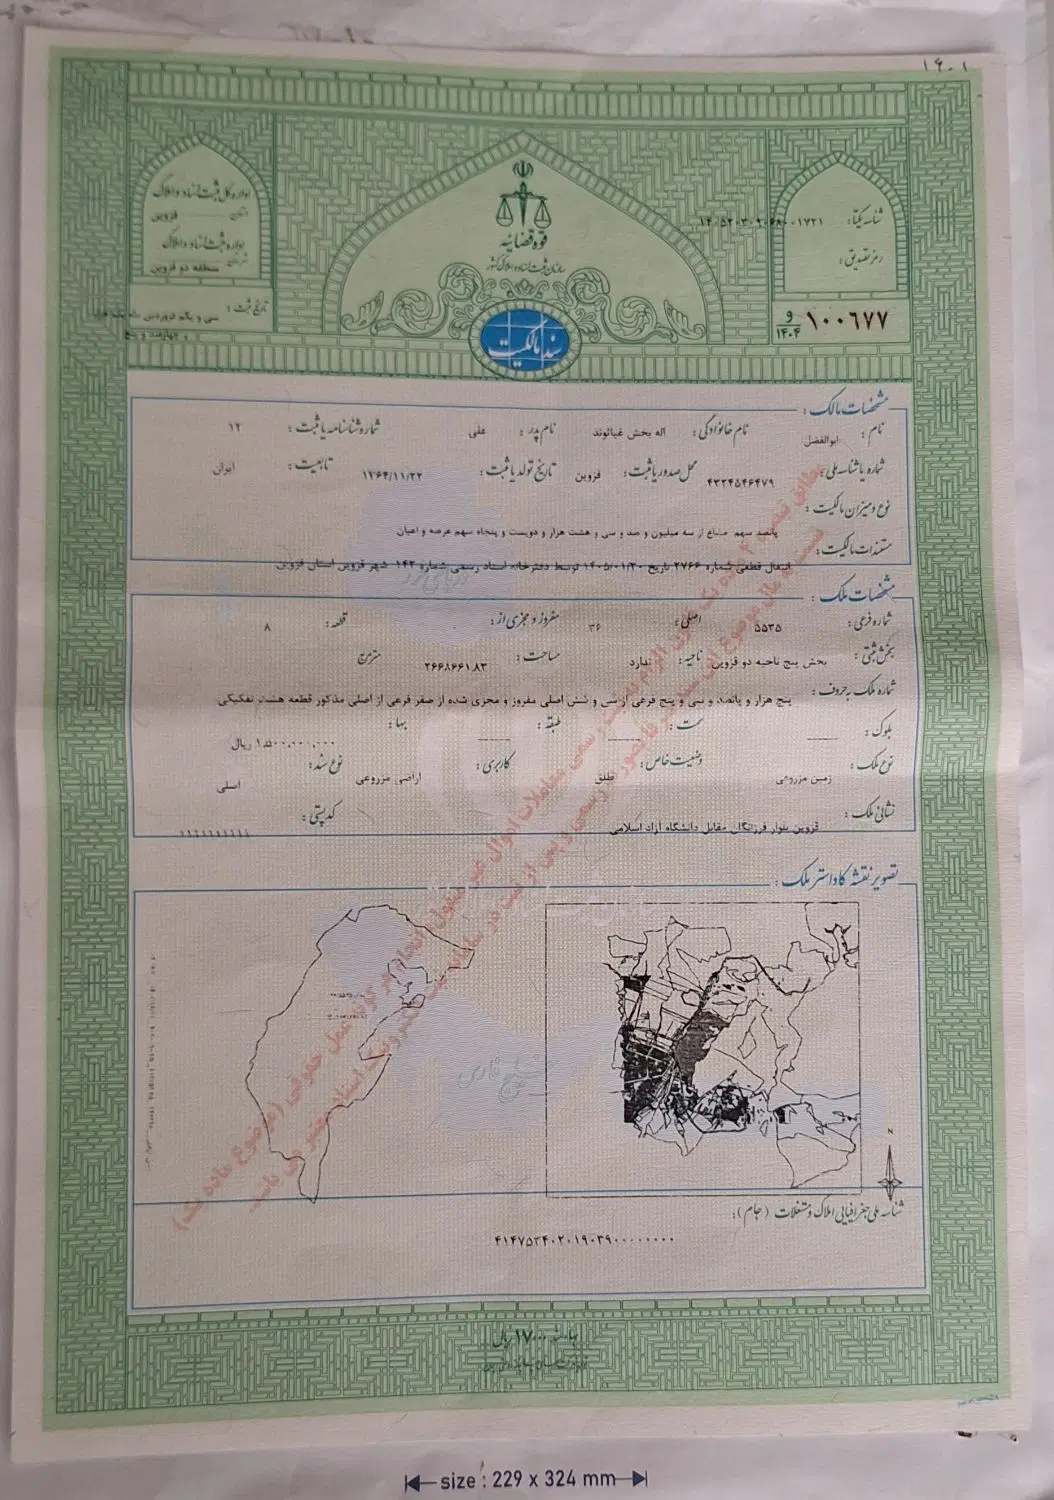 ۱۴۰۱
اداره کل ثبت اسناد و املاک
استان قزوین
اداره ثبت اسناد و املاک
منطقه دو قزوین
تاریخ ثبت :
سی و یکم فروردین ماه یک هزار
و چهارصد و پنج
قوه قضائیه
سازمان ثبت اسناد و املاک کشور
سند مالکیت
شناسه یکتا: ۱۴۰۵۲۰۳۰۹۰۶۸۰۰۱۷۲۱
رمز تصدیق :
۱۰۰۶۷۷ و ۱۴۰۴
مشخصات مالک :
نام : ابوالفضل نام خانوادگی : اله بخش غیاثوند نام پدر : علی شماره شناسنامه یا ثبت : ۱۲
شماره یا شناسه ملی : ۴۳۲۴۵۴۶۴۷۹ محل صدور یا ثبت : قزوین تاریخ تولد یا ثبت : ۱۳۶۴/۱۱/۲۲ تابعیت : ایران
نوع و میزان مالکیت :
پانصد سهم مشاع از سه میلیون و صد و سی و هشت هزار و دویست و پنجاه سهم عرصه و اعیان
مستندات مالکیت :
انتقال قطعی شماره ۲۷۶۶ تاریخ ۱۴۰۵/۰۱/۳۰ توسط دفترخانه اسناد رسمی شماره ۱۴۲ شهر قزوین استان قزوین
مشخصات ملک :
شماره فرعی : ۵۵۳۵ اصلی : ۳۶ مفروز و مجزی از : ۰ قطعه : ۸
بخش ثبتی : بخش پنج ناحیه دو قزوین ناحیه : ندارد مساحت : ۲۶۶۸۶۶۱.۸۳ مترمربع
شماره ملک به حروف : پنج هزار و پانصد و سی و پنج فرعی از سی و شش اصلی مفروز و مجزی شده از صفر فرعی از اصلی مذکور قطعه هشت تفکیکی
بلوک : سمت : طبقه : بها : ۱,۵۰۰,۰۰۰,۰۰۰ ریال
نوع ملک : زمین مزروعی وضعیت خاص : طلق کاربری : اراضی مزروعی نوع سند : اصلی
نشانی ملک : قزوین بلوار فرزانگان مقابل دانشگاه آزاد اسلامی کدپستی : ۱۱۱۱۱۱۱۱۱۱
تصویر نقشه کاداستر ملک :
خلیج فارس
N
شناسه ملی جغرافیایی املاک و مستغلات (جام) :
۴۱۴۷۵۳۴۰۲۰۱۹۰۳۹۰۰۰۰۰۰۰۰
بها سند ۱۷۰۰۰ ریال
size : 229 x 324 mm